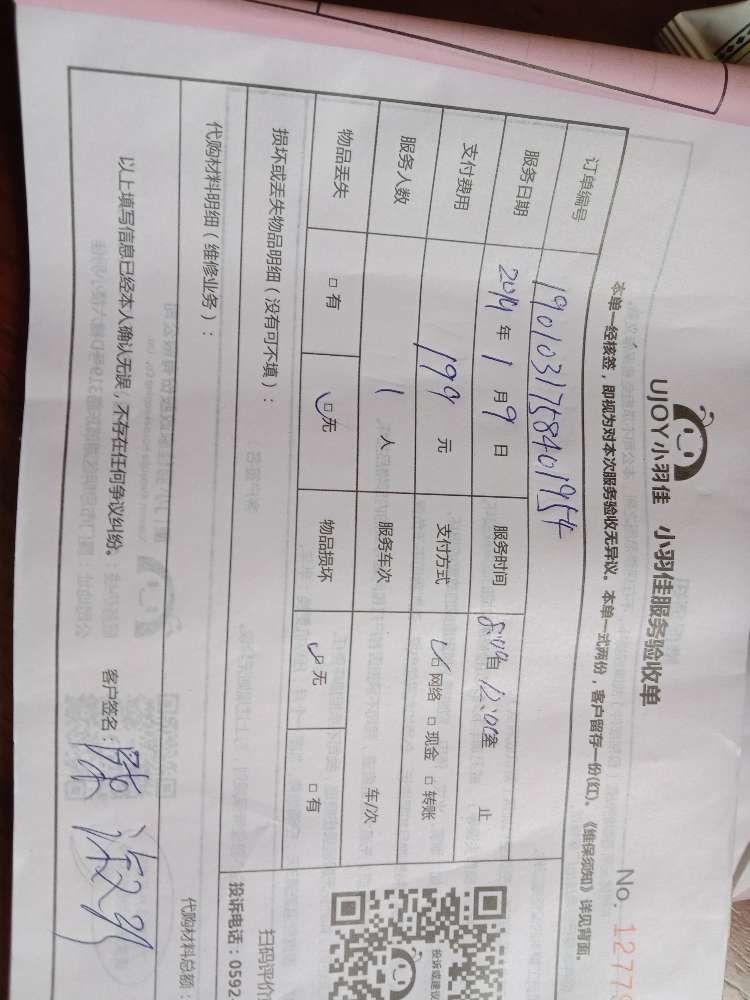 UJOY小羽佳 小羽佳服务验收单
No. 1277
本单一经核签，即视为对本次服务验收无异议。本单一式两份，客户留存一份(红)。《维保须知》详见背面。
订单编号 1901031758401954
服务日期 2019年1月9日 服务时间 自 12:00 至 止
支付费用 199元 支付方式 □网络 □现金 □转账
服务人数 1人 服务车次 车/次
物品丢失 □有 □无 物品损坏 □无 □有
损坏或丢失物品明细（没有可不填）：
代购材料明细（维修业务）：
代购材料总额：
以上填写信息已经本人确认无误，不存在任何争议纠纷。 客户签名：
投诉或建议
扫码评价
投诉电话：0592